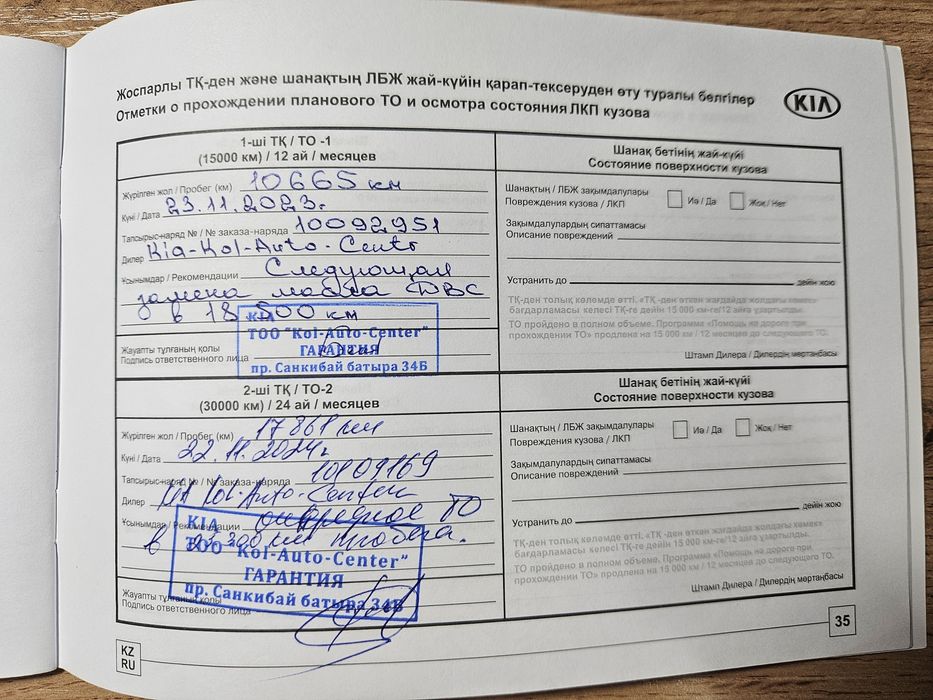 Жоспарлы ТҚ-ден және шанақтың ЛБЖ жай-күйін қарап-тексеруден өту туралы белгілер
Отметки о прохождении планового ТО и осмотра состояния ЛКП кузова
KIA
1-ші ТҚ / ТО -1
(15000 км) / 12 ай / месяцев
Жүрілген жол / Пробег (км) 10665 км
Күні / Дата 23.11.2023г.
Тапсырыс-наряд № / № заказа-наряда 10092951
Дилер Kia-Kol-Auto-Centr
Ұсынымдар / Рекомендации Следующая
замена масла ДВС
в 18 500 км
KIA
ТОО "Kol-Auto-Center"
ГАРАНТИЯ
пр. Санкибай батыра 34Б
Жауапты тұлғаның қолы
Подпись ответственного лица
Шанақ бетінің жай-күйі
Состояние поверхности кузова
Шанақтың / ЛБЖ зақымдалулары
Повреждения кузова / ЛКП Иә / Да Жоқ / Нет
Зақымдалулардың сипаттамасы
Описание повреждений
Устранить до дейін жою
ТҚ-ден толық көлемде өтті. «ТҚ-ден өткен жағдайда жолдағы көмек»
бағдарламасы келесі ТҚ-ге дейін 15 000 км-ге/12 айға ұзартылды.
ТО пройдено в полном объеме. Программа «Помощь на дороге при
прохождении ТО» продлена на 15 000 км / 12 месяцев до следующего ТО.
Штамп Дилера / Дилердің мөртаңбасы
2-ші ТҚ / ТО-2
(30000 км) / 24 ай / месяцев
Жүрілген жол / Пробег (км) 17861 км
Күні / Дата 22.11.2024г.
Тапсырыс-наряд № / № заказа-наряда 10109169
Дилер Kol-Auto-Center
Ұсынымдар / Рекомендации очередное ТО
в км пробега.
KIA
ТОО "Kol-Auto-Center"
ГАРАНТИЯ
пр. Санкибай батыра 34Б
Жауапты тұлғаның қолы
Подпись ответственного лица
Шанақ бетінің жай-күйі
Состояние поверхности кузова
Шанақтың / ЛБЖ зақымдалулары
Повреждения кузова / ЛКП Иә / Да Жоқ / Нет
Зақымдалулардың сипаттамасы
Описание повреждений
Устранить до дейін жою
ТҚ-ден толық көлемде өтті. «ТҚ-ден өткен жағдайда жолдағы көмек»
бағдарламасы келесі ТҚ-ге дейін 15 000 км-ге/12 айға ұзартылды.
ТО пройдено в полном объеме. Программа «Помощь на дороге при
прохождении ТО» продлена на 15 000 км / 12 месяцев до следующего ТО.
Штамп Дилера / Дилердің мөртаңбасы
KZ
RU
35